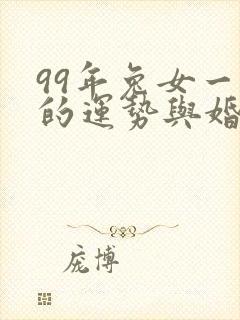 99年兔女一
的運勢與婚
庞博